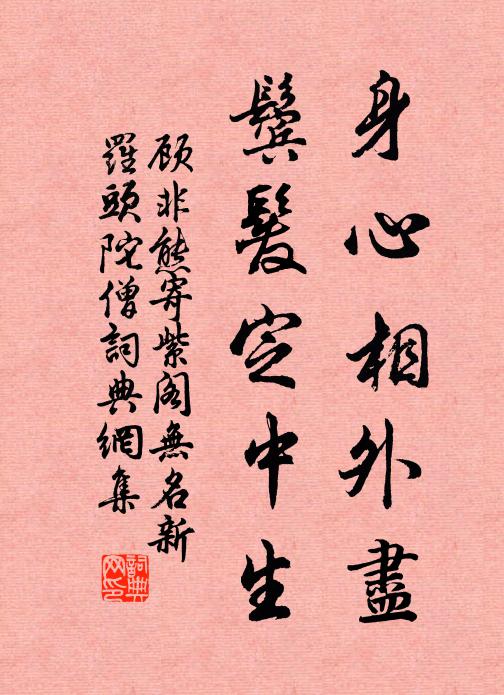 身心相外盡
鬢髮定中生
顧非熊寄紫阁無名新
羅頭陀僧詞典網集
詞典网印